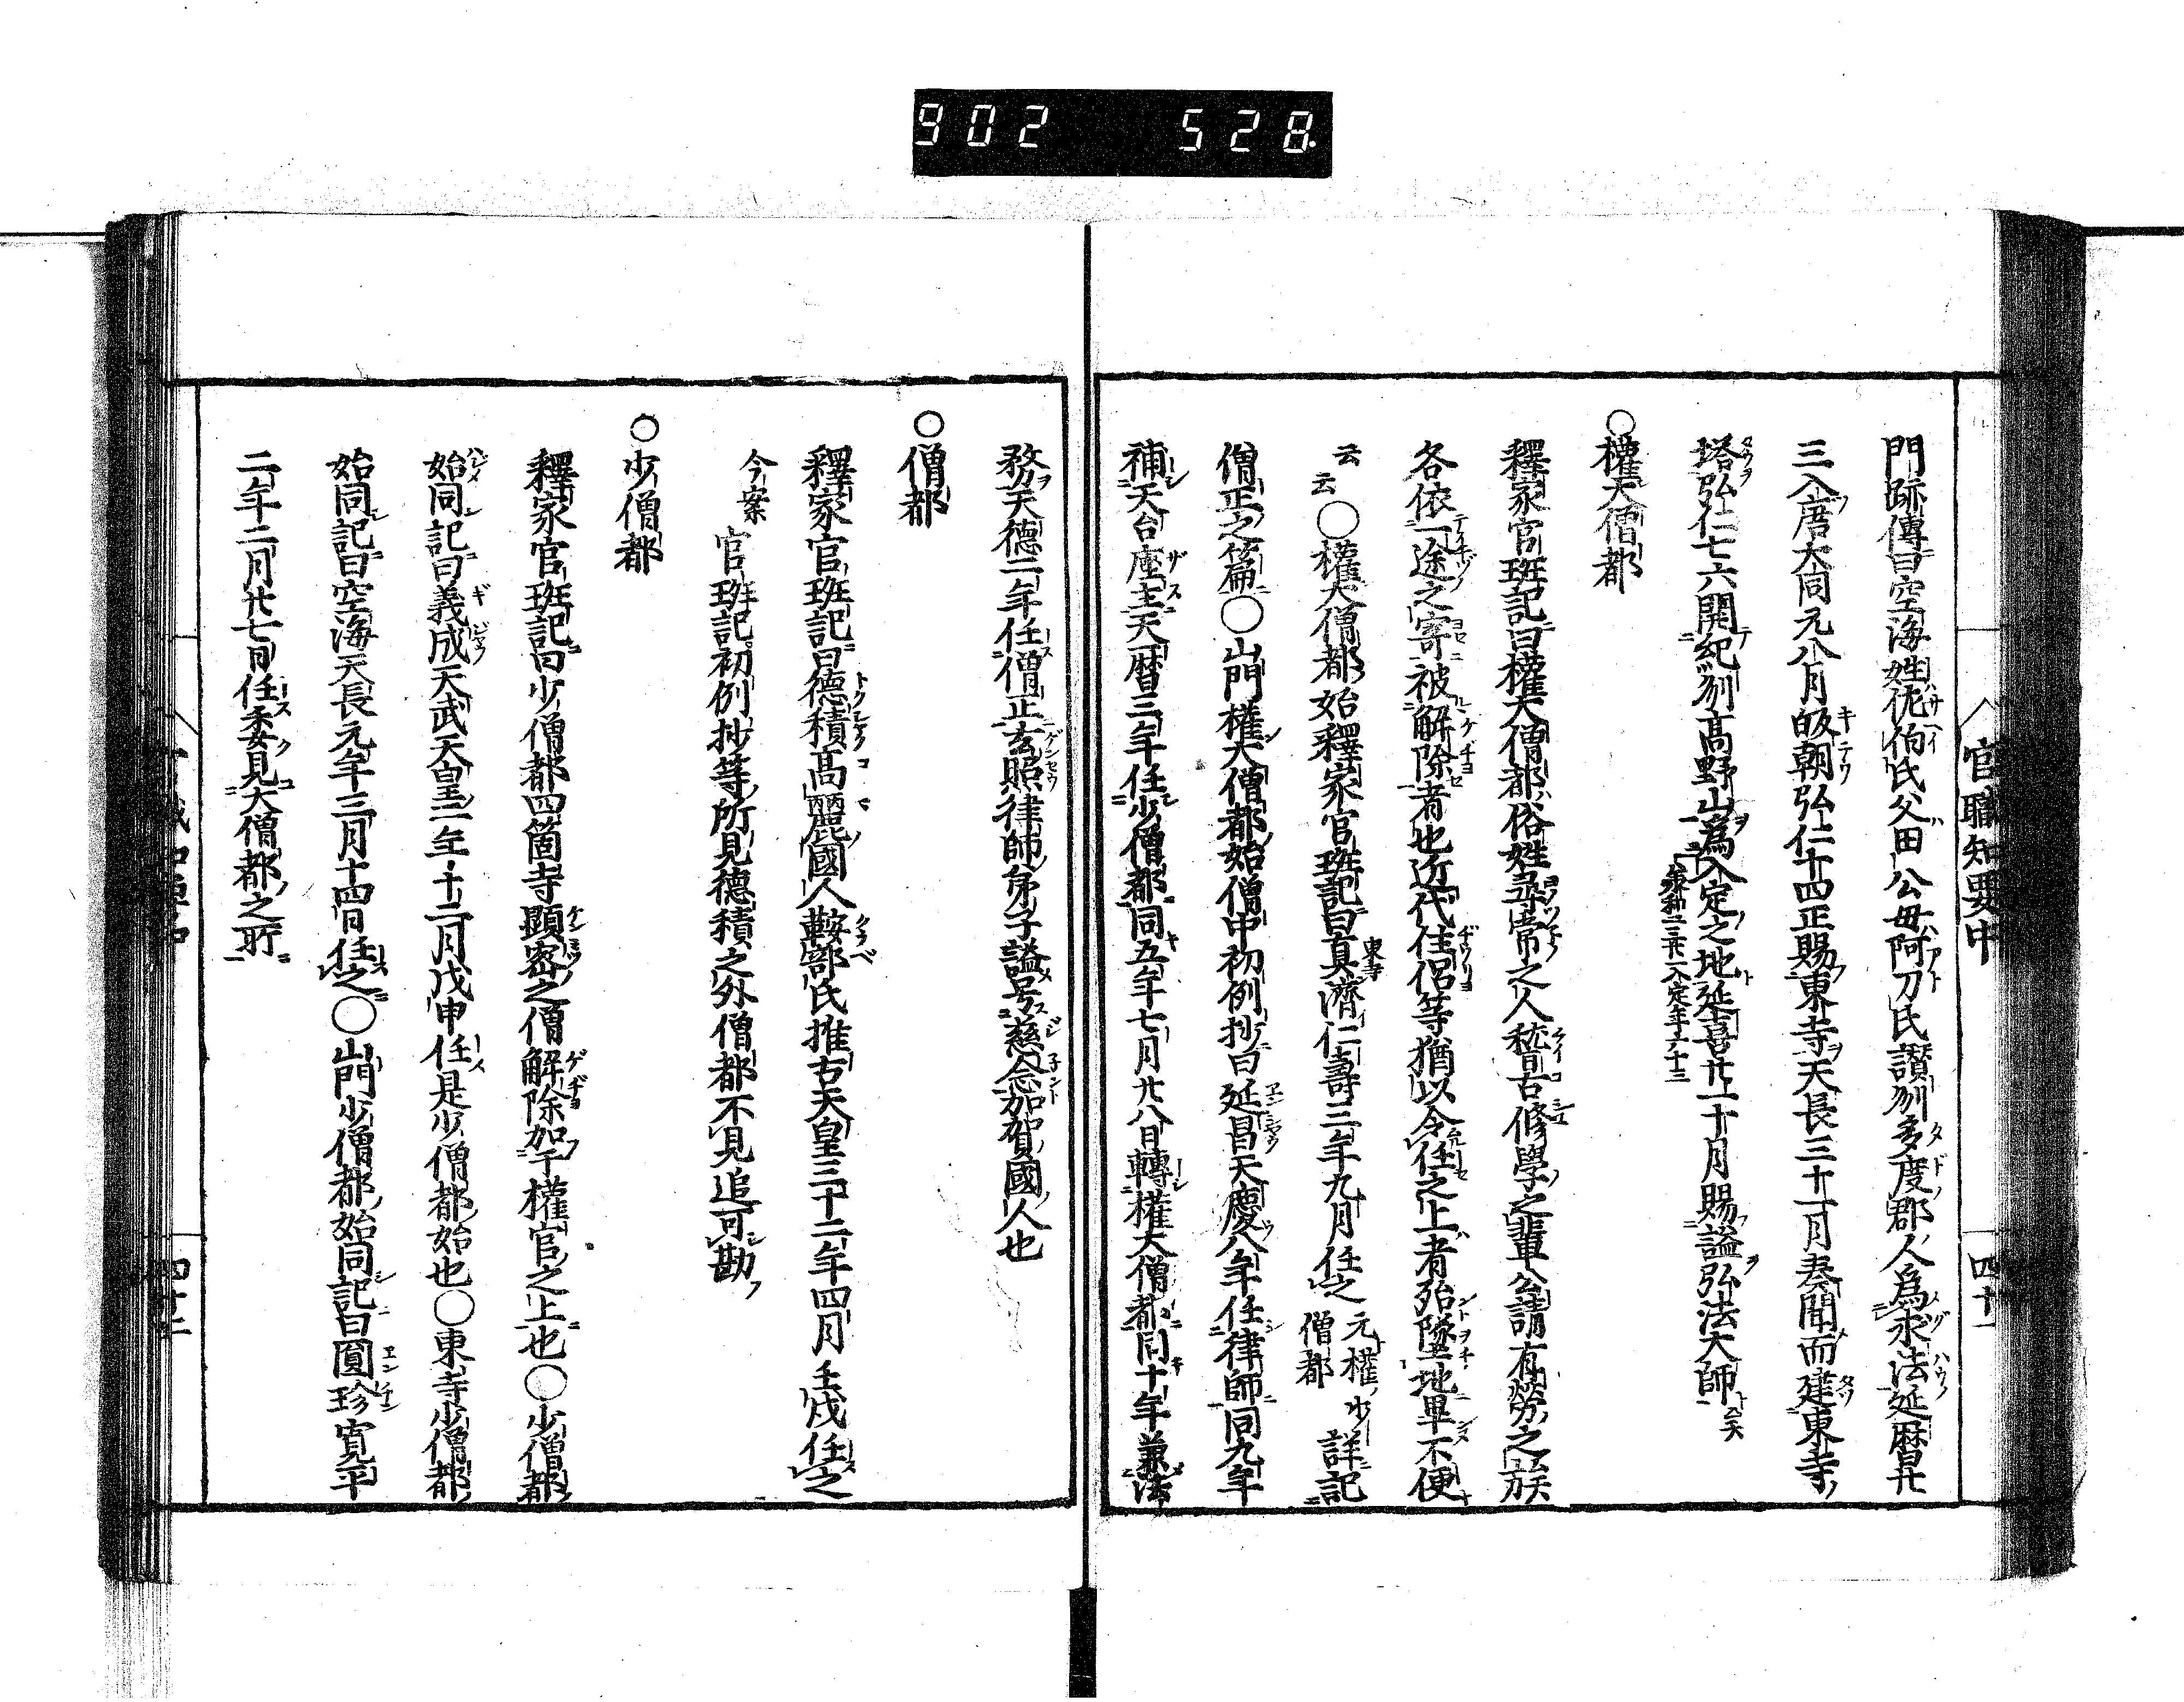 902 528
官職知要中
四十一
門跡傳曰空海姓佐伯氏父田公母阿刀氏讃刕多度郡人爲求法延暦廿
三入唐大同元八月皈朝弘仁十四正賜東寺天長三十一月奏聞而建東寺
塔弘仁七六開紀刕髙野山爲入定之地延喜廿一十月賜諡弘法大師云々
承和二三廿一入定年六十三
○權大僧都
釋家官班記曰權大僧都俗姓尋常之人稽古修學之輩公請有勞之族
各依一途之寄被解除者也近代住侶等猶以令任之上者殆墜地畢不便
云云○權大僧都始釋家官班記曰真濟東寺仁壽三年九月任之元權少僧都詳記
僧正之篇○山門權大僧都始僧中初例抄曰延昌天慶八年任律師同九年
補天台座主天暦二年任少僧都同五年七月廿八日轉權大僧都同十年兼法
務天德二年任僧正玄照律師弟子謚号慈念加賀國人也
○僧都
釋家官班記曰德積髙麗國人鞍部氏推古天皇三十二年四月壬戌任之
今案官班記初例抄等所見德積之外僧都不見追可勘
○少僧都
釋家官班記曰少僧都四箇寺顯密之僧解除加于權官之上也○少僧都
始同記曰義成天武天皇二年十二月戊申任是少僧都始也○東寺少僧都
始同記曰空海天長元年三月十四日任之○山門少僧都始同記曰圓珍寛平
二年二月廿七日任委見大僧都之所